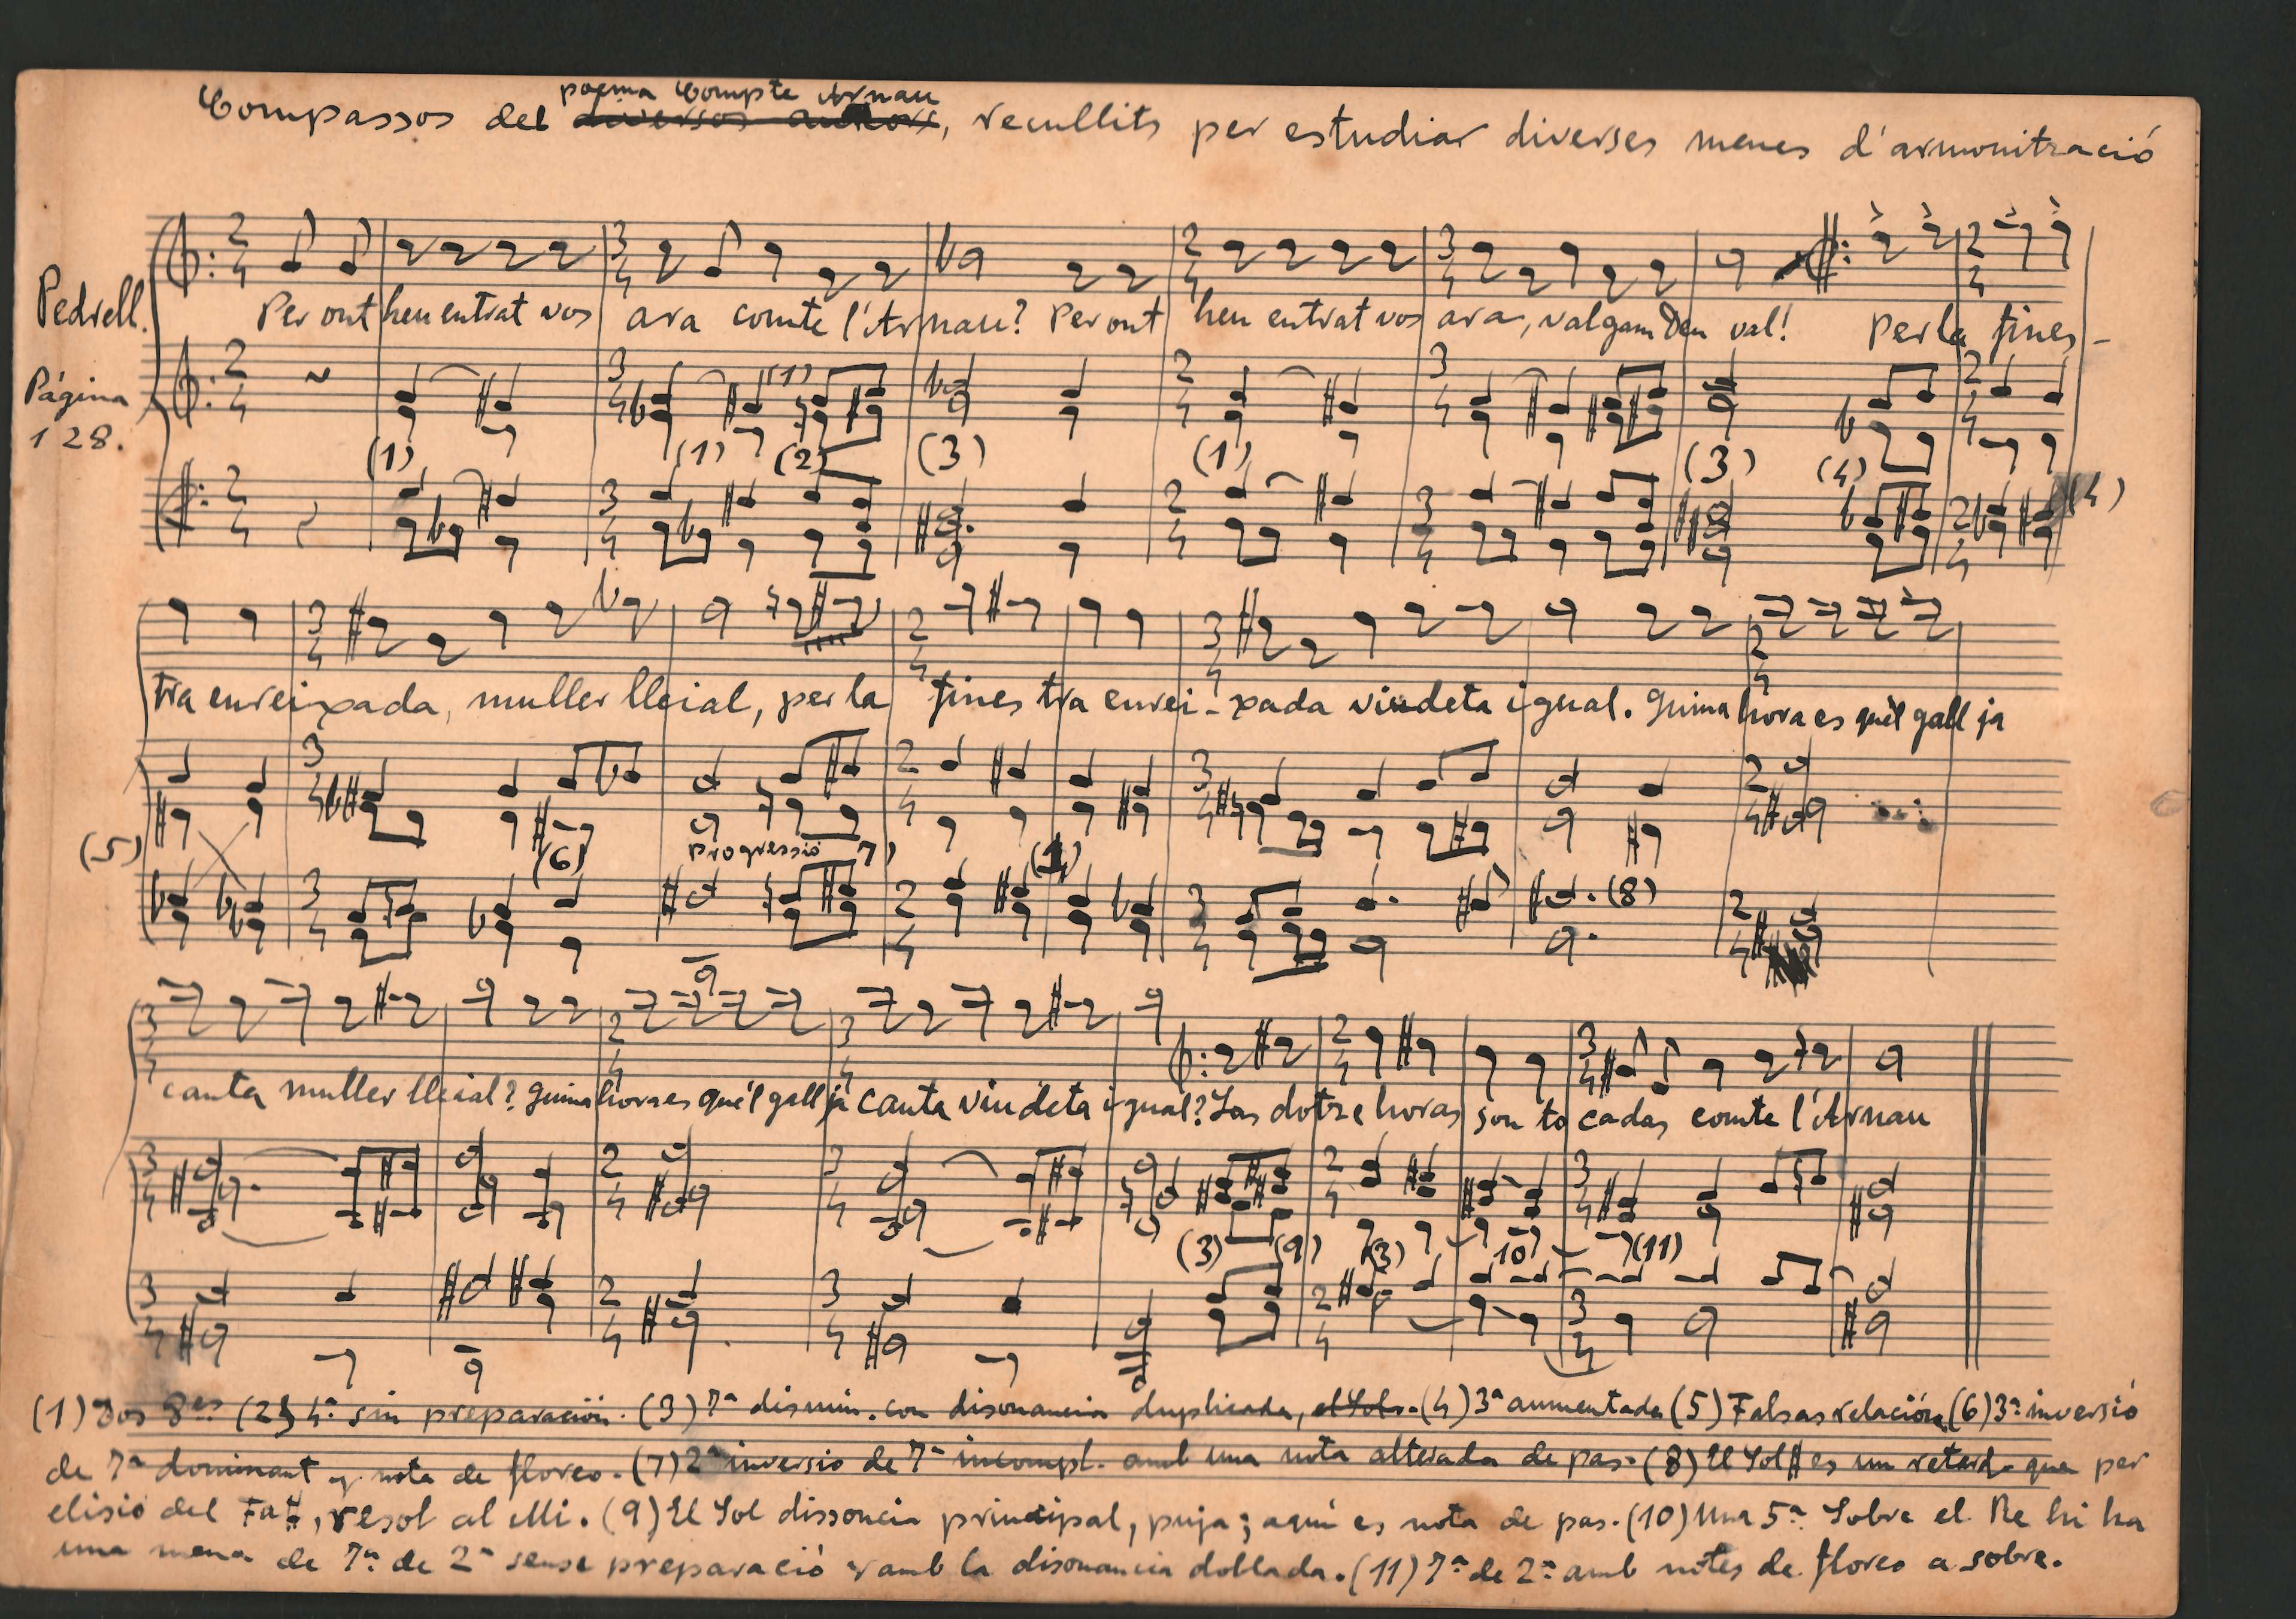 poema Compte Arnau
Compassos del diversos autors, recullits per estudiar diverses menes d'armonització
Pedrell.
Página
128.
Per ont heu entrat vos ara comte l'Arnau? Per ont heu entrat vos ara, valgam Deu val! Per la fines-
(1)
(1) (1) (2) (3) (1) (3) (4) (4)
tra enreixada, muller lleial, per la fines tra enrei-xada viudeta igual. Quina hora es qu'el gall ja
(5) (6) Progressió 7) (1) (8)
canta muller lleial? Quina hora es qu'el gall ja canta viudeta igual? Las dotze horas son to cadas comte l'Arnau
(3) (9) (3) 10 (11)
(1) Dos 8es (2) 4ª sin preparación. (3) 7ª dismin. con disonancia duplicada, el Sol. (4) 3ª aumentada (5) Falsas relación (6) 3ª inversió
de 7ª dominant y nota de floreo. (7) 2ª inversió de 7ª incompl. amb una nota alterada de pas. (8) El Sol# es un retard que per
elisió del Fa#, resol al Mi. (9) El Sol dissoncia principal, puja; aquí es nota de pas. (10) Una 5ª. Sobre el Re hi ha
una mena de 7ª de 2ª sense preparació y amb la disonancia doblada. (11) 7ª de 2ª amb notes de floreo a sobre.